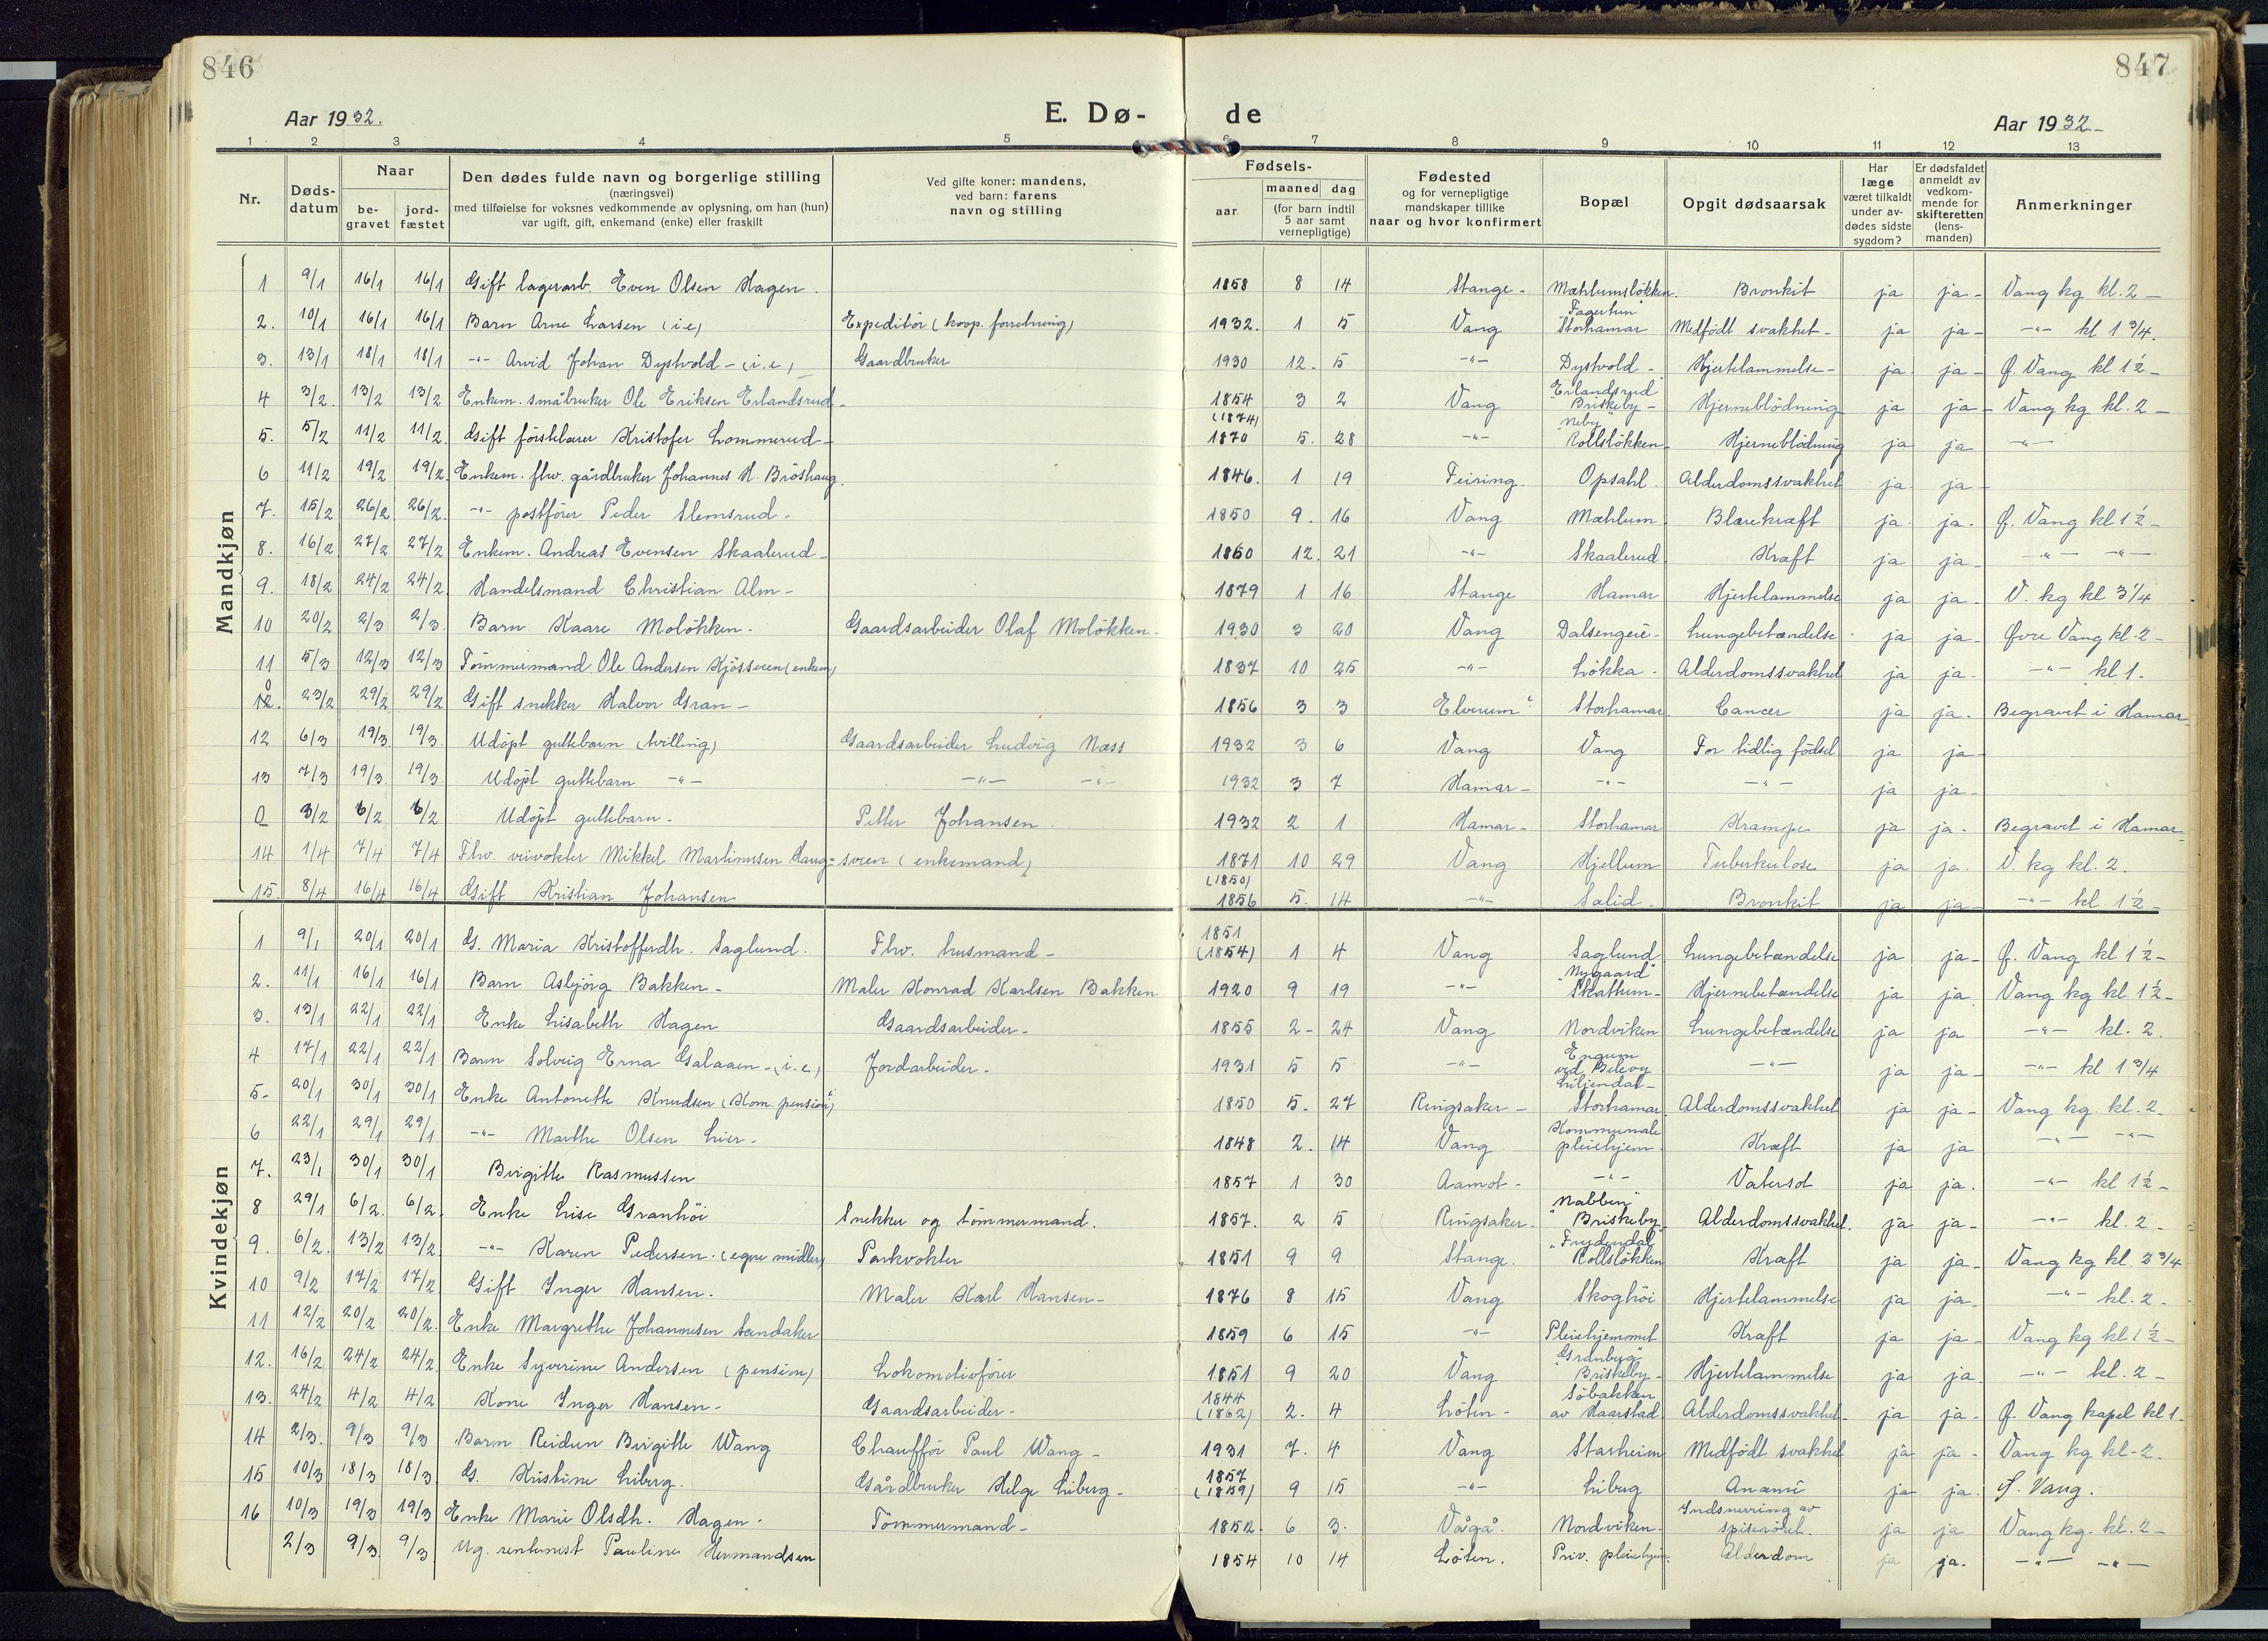 846
847
Aar 1932.
E. Dø-
de
Aar 1932-
1 2 3 4 5 6 7 8 9 10 11 12 13
Nr.
Døds-datum
Naar
be-gravet
jord-fæstet
Den dødes fulde navn og borgerlige stilling
(næringsvei)
med tilføielse for voksnes vedkommende av oplysning, om han (hun)
var ugift, gift, enkemand (enke) eller fraskilt
Ved gifte koner: mandens,
ved barn: farens
navn og stilling
Fødsels-
aar
maaned dag
(for barn indtil
5 aar samt
vernepligtige)
Fødested
og for vernepligtige
mandskaper tillike
naar og hvor konfirmert
Bopæl
Opgit dødsaarsak
Har
læge
været tilkaldt
under av-
dødes sidste
sygdom?
Er dødsfaldet
anmeldt av
vedkom-
mende for
skifteretten
(lens-
manden)
Anmerkninger
Mandkjøn
1 9/1 16/1 16/1 Gift lagerarb. Even Olsen Hagen. 1858 8 14 Stange- Mæhlumsløkken. Bronkit ja ja- Vang kg kl. 2-
2. 10/1 16/1 16/1 Barn Arne Larsen (i.e) Expeditør (koop. forretning) 1932. 1 5 Vang "Fagertun" Storhamar Medfødt svakhet- ja ja- -"- kl 1 3/4.
3. 13/1 18/1 18/1 -"- Arvid Johan Dystvold- (i.e) Gaardbruker 1930 12. 5 -"- Dystvold- Hjertelammelse- ja ja- Ø. Vang kl 1½-
4 3/2. 13/2 13/2 Enkem. småbruker Ole Eriksen Erlandsrud- 1854 3 2 Vang "Erlandsrud" Briskeby- Hjerneblødning ja ja- Vang kg kl. 2-
5. 5/2 11/2 11/2. Gift førstelærer Kristofer Lommerud- (1874) 1870 5. 28 -"- "Neby" Rollsløkken Hjerneblødning ja ja -"-
6 11/2 19/2 19/2. Enkem. fhv. gårdbruker Johannes H. Brøshaug. 1846. 1 19 Feiring. Opsahl. Alderdomssvakhet ja ja-
7. 15/2 26/2 26/2. -"- postfører Peder Slemsrud- 1850 9. 16 Vang Mæhlum. Blærekræft ja. ja. Ø. Vang kl 1½-
8. 16/2 27/2 27/2 Enkem. Andreas Evensen Skaalerud- 1860 12. 21 -"- Skaalerud Kræft ja ja- -"- -"-
9. 18/2 24/2 24/2 Handelsmand Christian Alm- 1879 1 16 Stange Hamar Hjertelammelse ja ja- V. kg kl 3¼
10 20/2 2/3 2/3. Barn Kaare Moløkken. Gaardsarbeider Olaf Moløkken- 1930 3 20 Vang Dalsengeie- Lungebetændelse. ja ja- Øvre Vang kl. 2-
11 5/3 12/3 12/3 Tømmermand Ole Andersen Kjøsseren (enkem) 1837 10 25 -"- Løkka- Alderdomssvakhet ja ja- -"- kl 1.
0 12. 23/2 29/2 29/2 Gift snekker Halvor Gran- 1856 3 3 Elverum Storhamar Cancer ja ja. Begravet i Hamar
12 6/3 19/3 19/3 Udøpt guttebarn (tvilling) Gaardsarbeider Ludvig Næss 1932 3 6 Vang Vang For tidlig fødsel ja ja-
13 7/3 19/3 19/3. Udøpt guttebarn -"- -"- -"- 1932 3 7 Hamar- -"- -"- ja ja-
0 3/2 6/2 6/2 Udøpt guttebarn. Petter Johansen. 1932 2 1 Hamar- Storhamar Krampe ja ja. Begravet i Hamar
14 1/4 7/4 7/4 Fhv. veivokter Mikkel Martinusen Haug=sveen (enkemand) 1871 10 29 Vang Hjellum Tuberkulose ja ja. V. kg kl. 2.
15. 8/4 16/4 16/4 Gift Kristian Johansen (1850) 1856 5. 14 -"- Salid- Bronkit ja ja- -"- kl. 1½-
Kvindekjøn
1 9/1 20/1 20/1 G. Maria Kristofferdh. Saglund. Fhv. husmand- 1851 (1854) 1 4 Vang Saglund Lungebetændelse ja ja- Ø. Vang kl 1½-
2. 11/1 16/1 16/1 Barn Asbjörg Bakken- Maler Konrad Karlsen Bakken 1920 9 19 -"- "Nygaard" Skattum- Hjernebetændelse ja ja. Vang kg kl 1½-
3. 13/1 22/1 22/1 Enke Lisabeth Hagen Gaardsarbeider- 1855 2- 24 Vang Nordviken Lungebetændelse ja ja -"- kl. 2.
4 17/1 22/1 22/1 Barn Solveig Erna Galaaen- (i.e) Jordarbeider- 1931 5 5 -"- Engum ved Beleby -"- ja ja- -"- kl 1 3/4
5- 20/1 30/1 30/1 Enke Antonette Knudsen (Kom. pension) 1850 5. 27 Ringsaker- Liljendal- Storhamar. Alderdomssvakhet ja ja- Vang kg. kl. 2.
6 22/1 29/1 29/1 -"- Marthe Olsen Lier- 1848 2. 14 Vang Kommunale pleiehjem. Kræft ja ja -"- -"-
7. 23/1 30/1 30/1 Birgitte Rasmussen 1857 1 30 Aamot- -"- Vatersot ja ja. -"- kl 1½-
8 29/1 6/2. 6/2. Enke Lise Granhøi Snekker og tømmermand. 1857. 2 5 Ringsaker- "Nabben" Briskeby Alderdomssvakhet. ja ja- -"- kl. 2-
9. 6/2. 13/2 13/2 -"- Karen Pedersen. (egne midler) Parkvokter 1851 9 9 Stange. "Frydendal" Rollsløkken Kræft ja ja- Vang kg kl. 2 3/4
10 9/2 17/2 17/2 Gift Inger Hansen. Maler Karl Hansen- 1876 8 15 Vang Skoghøi Hjertelammelse ja ja- -"- kl. 2-
11 12/2 20/2 20/2. Enke Margrethe Johannesen Sandaker 1859 6 15 -"- Pleiehjemmet Kræft ja ja- Vang kg kl 1½-
12. 16/2 24/2 24/2. Enke Syverine Andersen (pension) Lokomotivfører 1851 9 20 Vang "Granbyg" Briskeby- Hjertelammelse ja ja. -"- kl. 2-
13. 24/2 4/2 4/2 Kone Inger Hansen- Gaardsarbeider- 1844 (1862) 2. 4 Løten- Søbakken av Haarstad Alderdomssvakhet- ja ja- Ø. Vang kapel kl 1-
14 2/3. 9/3 9/3 Barn Reidun Birgitte Wang Chauffør Paul Wang- 1931 7. 4 Vang Starheim Medfødt svakhet ja ja- Vang kg kl-2.
15 10/3 18/3 18/3 G. Kristine Liberg. Gårdbruker Helge Liberg- 1857 (1859) 9 15 -"- Liberg Anæmi ja ja. Ø. Vang.
16 10/3 19/3 19/3 Enke Marie Olsdh. Hagen. Tømmermand- 1852. 6 3. Vågå. Nordviken. Indsnevring av spiserøret. ja ja Vang kg. kl. 2-
2/3 9/3 9/3 Ug. rentenist Pauline Hermandsen 1854 10 14 Løten. Priv. pleiehjem. Alderdom ja ja. -"- -"-